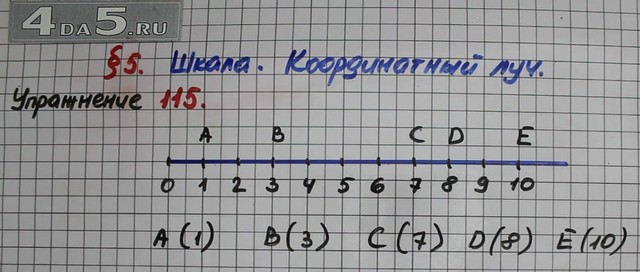 4ДА5.RU
§5. Шкала. Координатный луч.
Упражнение 115.
A B C D E
0 1 2 3 4 5 6 7 8 9 10
A(1) B(3) C(7) D(8) E(10)